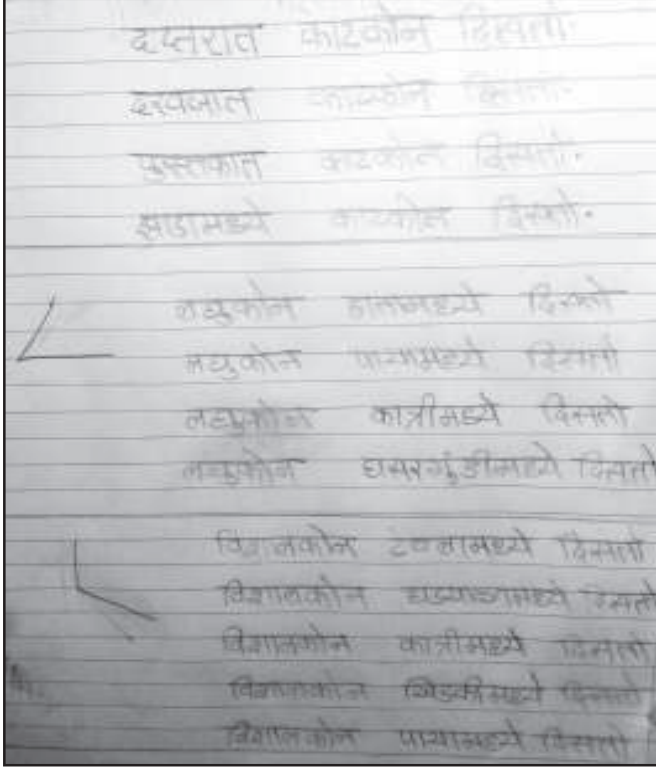 दप्तरात काटकोन दिसतो.
दरवजात काटकोन दिसतो.
पुस्तकात काटकोन दिसतो.
झाडामध्ये काटकोन दिसतो.
लघुकोन हातामध्ये दिसतो
लघुकोन पायामध्ये दिसतो
लघुकोन कात्रीमध्ये दिसतो
लघुकोन घसरगुंडीमध्ये दिसतो
विशालकोन टेबलामध्ये दिसतो
विशालकोन घड्याळामध्ये दिसतो
विशालकोन कात्रीमध्ये दिसतो
विशालकोन खिडकीमध्ये दिसतो
विशालकोन पायामध्ये दिसतो